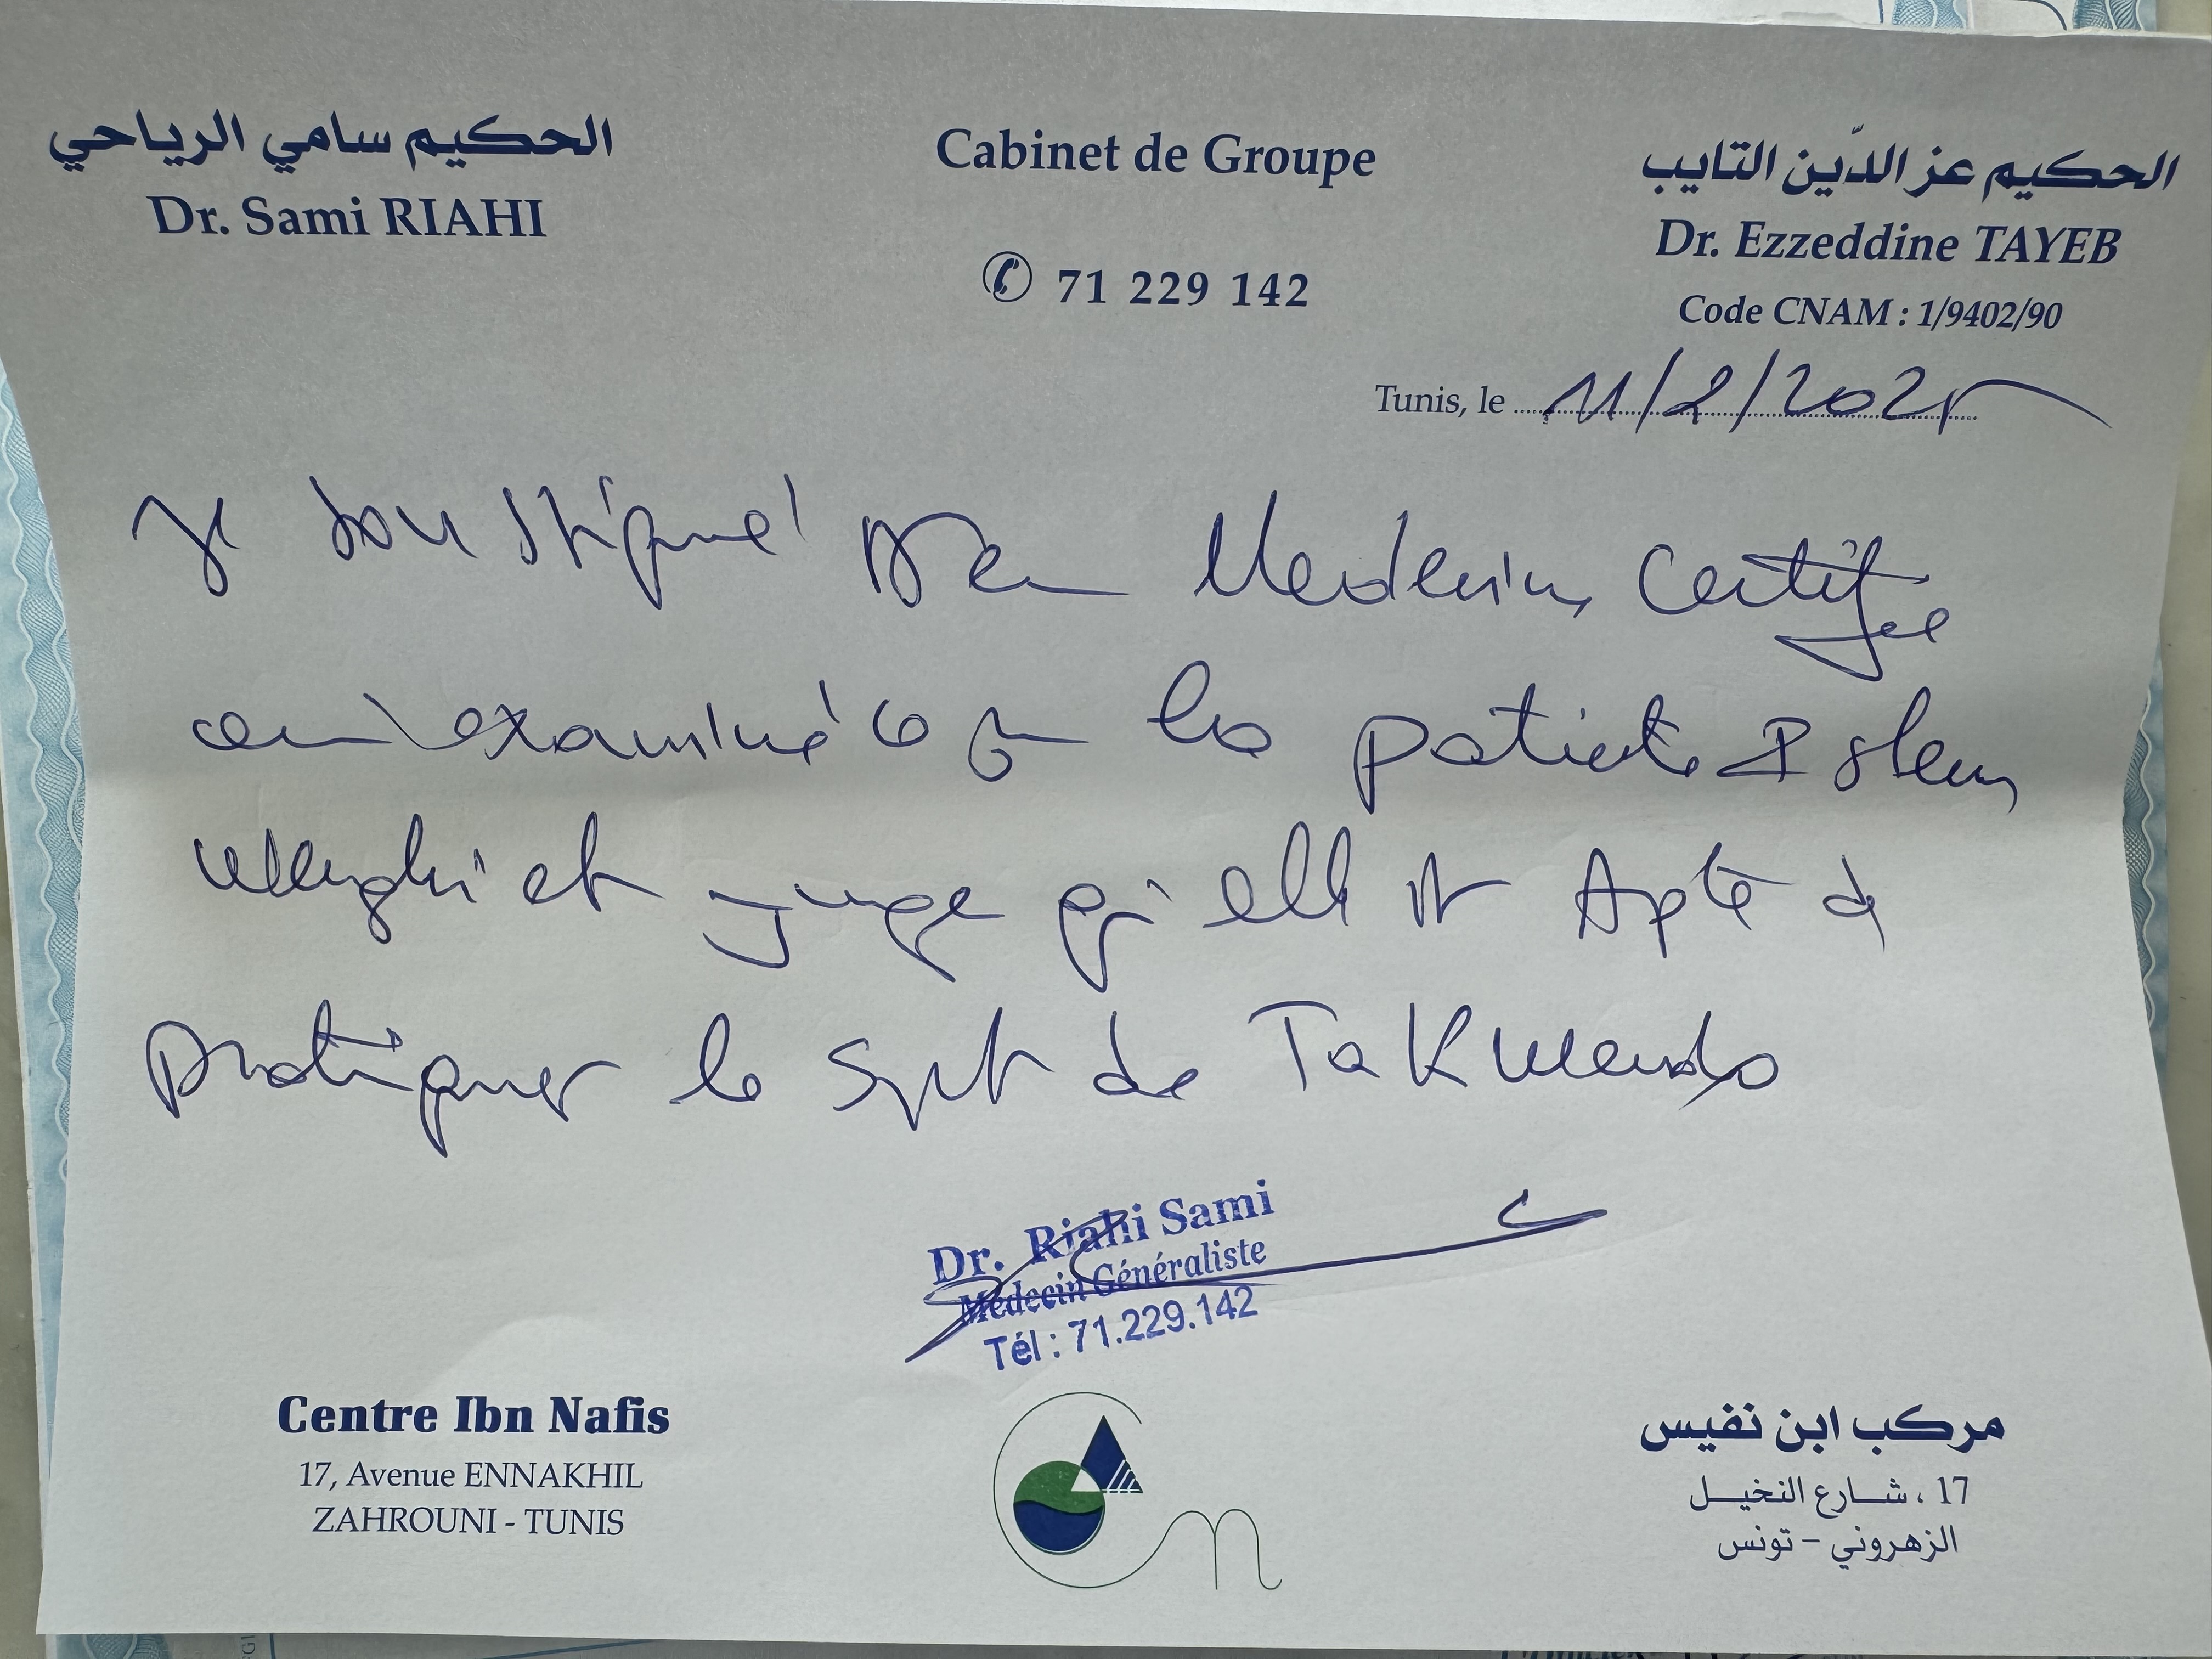 الحكيم سامي الرياحي
Dr. Sami RIAHI
Cabinet de Groupe
71 229 142
الحكيم عز الدّين التايب
Dr. Ezzeddine TAYEB
Code CNAM : 1/9402/90
Tunis, le 11/2/2025
Je soussigné Dr en Medecin, Certifie
avoir examiné ce jour la patiente Islem
et juge qu'elle est Apte à
pratiquer le sport de TaKwendo
Dr. Riahi Sami
Médecin Généraliste
Tél : 71.229.142
Centre Ibn Nafis
17, Avenue ENNAKHIL
ZAHROUNI - TUNIS
مركب ابن نفيس
17 ، شارع النخيل
الزهروني - تونس